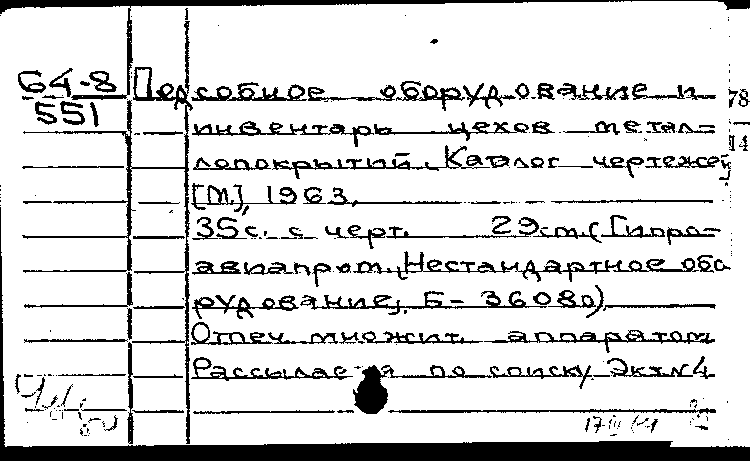 64-8
551
Подсобное оборудование и
инвентарь цехов метал=
лопокрытий. Каталог чертежей
[М.], 1963.
35с. с черт. 29см. (Гипро=
авиапром. Нестандартное обо
рудование, Б-36080)
Отпеч. множит. аппаратом
Рассылается по списку Экз.№4
78
14